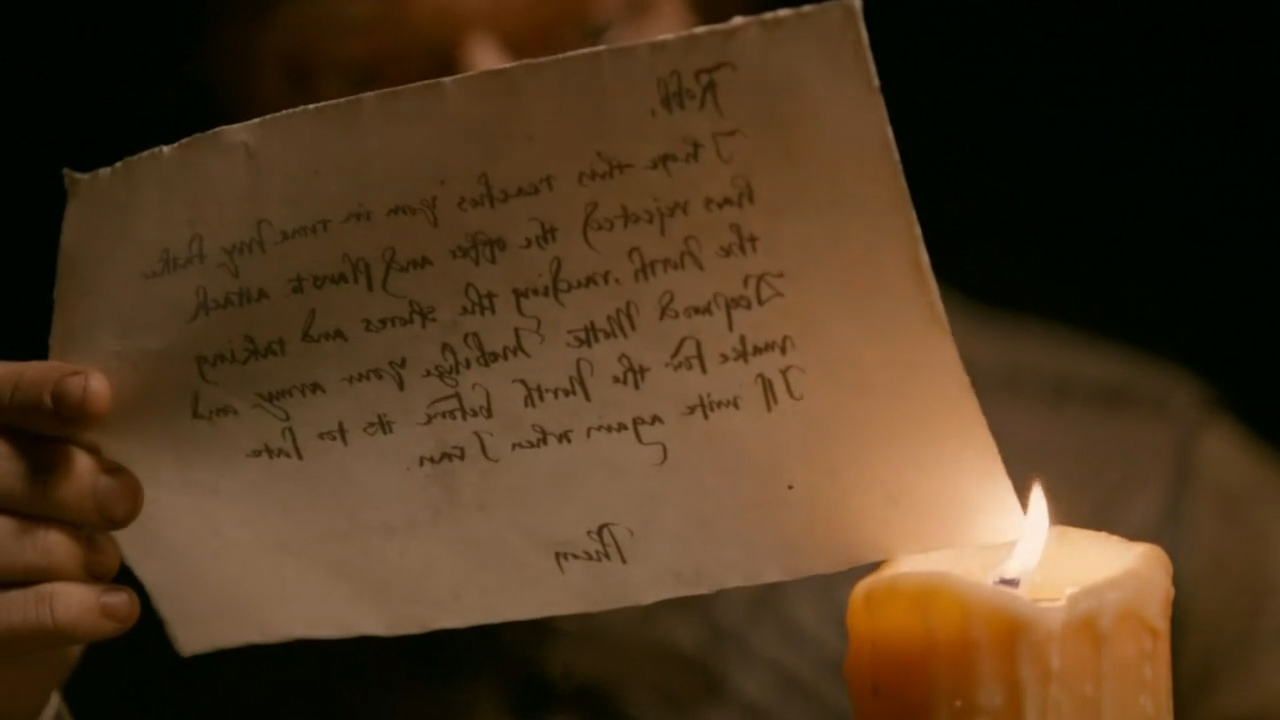 Robb,
I hope this reaches you in time My father
has rejected the offer and plans t attack
the North, raiding the shores and taking
Deepwood Motte Mobilize your army and
make for the North before its too late
I'll write again when I can.
Theon